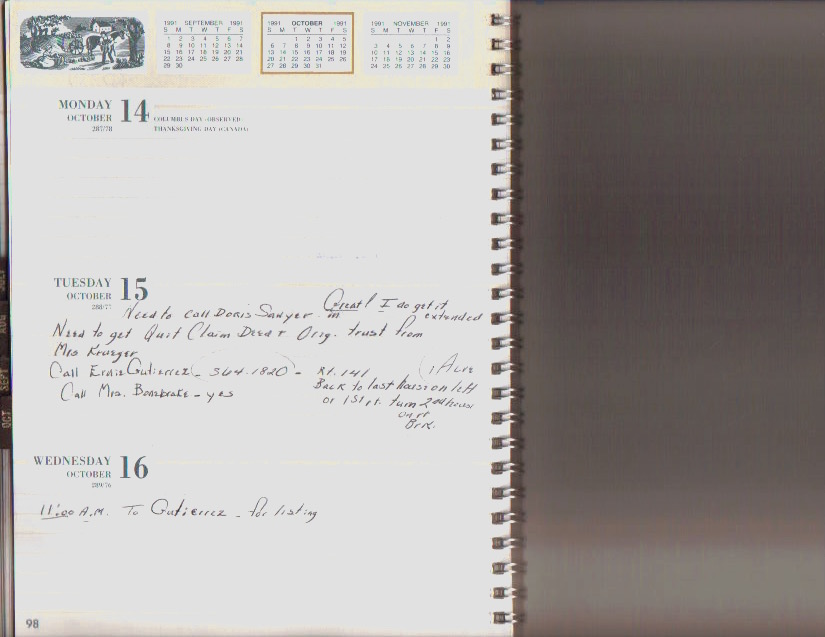 1991 SEPTEMBER 1991
S M T W T F S
1 2 3 4 5 6 7
8 9 10 11 12 13 14
15 16 17 18 19 20 21
22 23 24 25 26 27 28
29 30
1991 OCTOBER 1991
S M T W T F S
1 2 3 4 5
6 7 8 9 10 11 12
13 14 15 16 17 18 19
20 21 22 23 24 25 26
27 28 29 30 31
1991 NOVEMBER 1991
S M T W T F S
1 2
3 4 5 6 7 8 9
10 11 12 13 14 15 16
17 18 19 20 21 22 23
24 25 26 27 28 29 30
MONDAY 14
OCTOBER
287/78
COLUMBUS DAY (OBSERVED)
THANKSGIVING DAY (CANADA)
TUESDAY 15
OCTOBER
288/77
Great! I do get it
Need to call Doris Sawyer. extended
Need to get Quit Claim Deed & Orig. trust from
Mrs Krueger
Call Ernie Gutierrez - 364-1820 - Rt. 141 (1 Acre
Back to last house on left
Call Mrs. Bonebrake - yes
or 1st rt. turn 2nd house
on rt
Brk.
WEDNESDAY 16
OCTOBER
289/76
11:00 A.M. To Gutierrez - for listing
98
JULY
AUG
SEPT
OCT